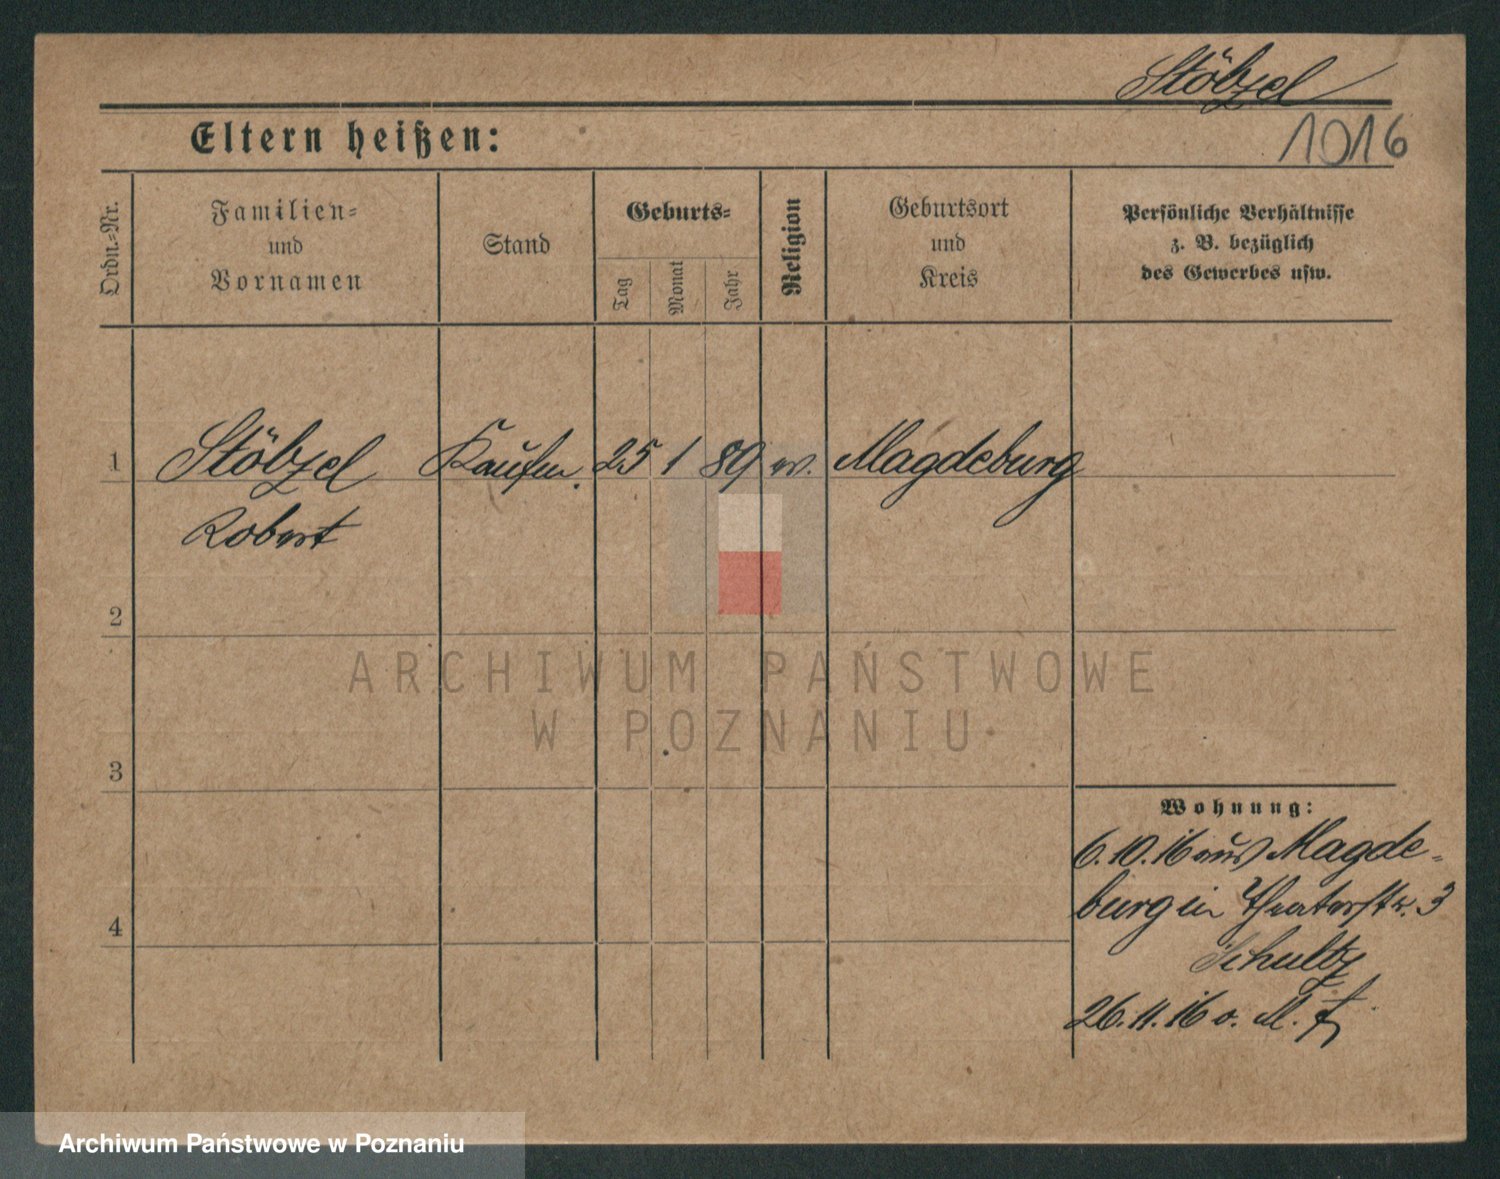 Stölzel
1016
Eltern heißen:
Ordn.-Nr.
Familien-
und
Vornamen
Stand
Geburts-
Tag
Monat
Jahr
Religion
Geburtsort
und
Kreis
Persönliche Verhältnisse
z. B. bezüglich
des Gewerbes usw.
1 Stölzel Kaufm. 25 1 89 ev. Magdeburg
Robert
2
3
4
Wohnung:
6.10.16 aus Magde-
burg in Theaterstr. 3
Schultz
26.11.16 o. M.
ARCHIWUM PAŃSTWOWE
W POZNANIU
Archiwum Państwowe w Poznaniu